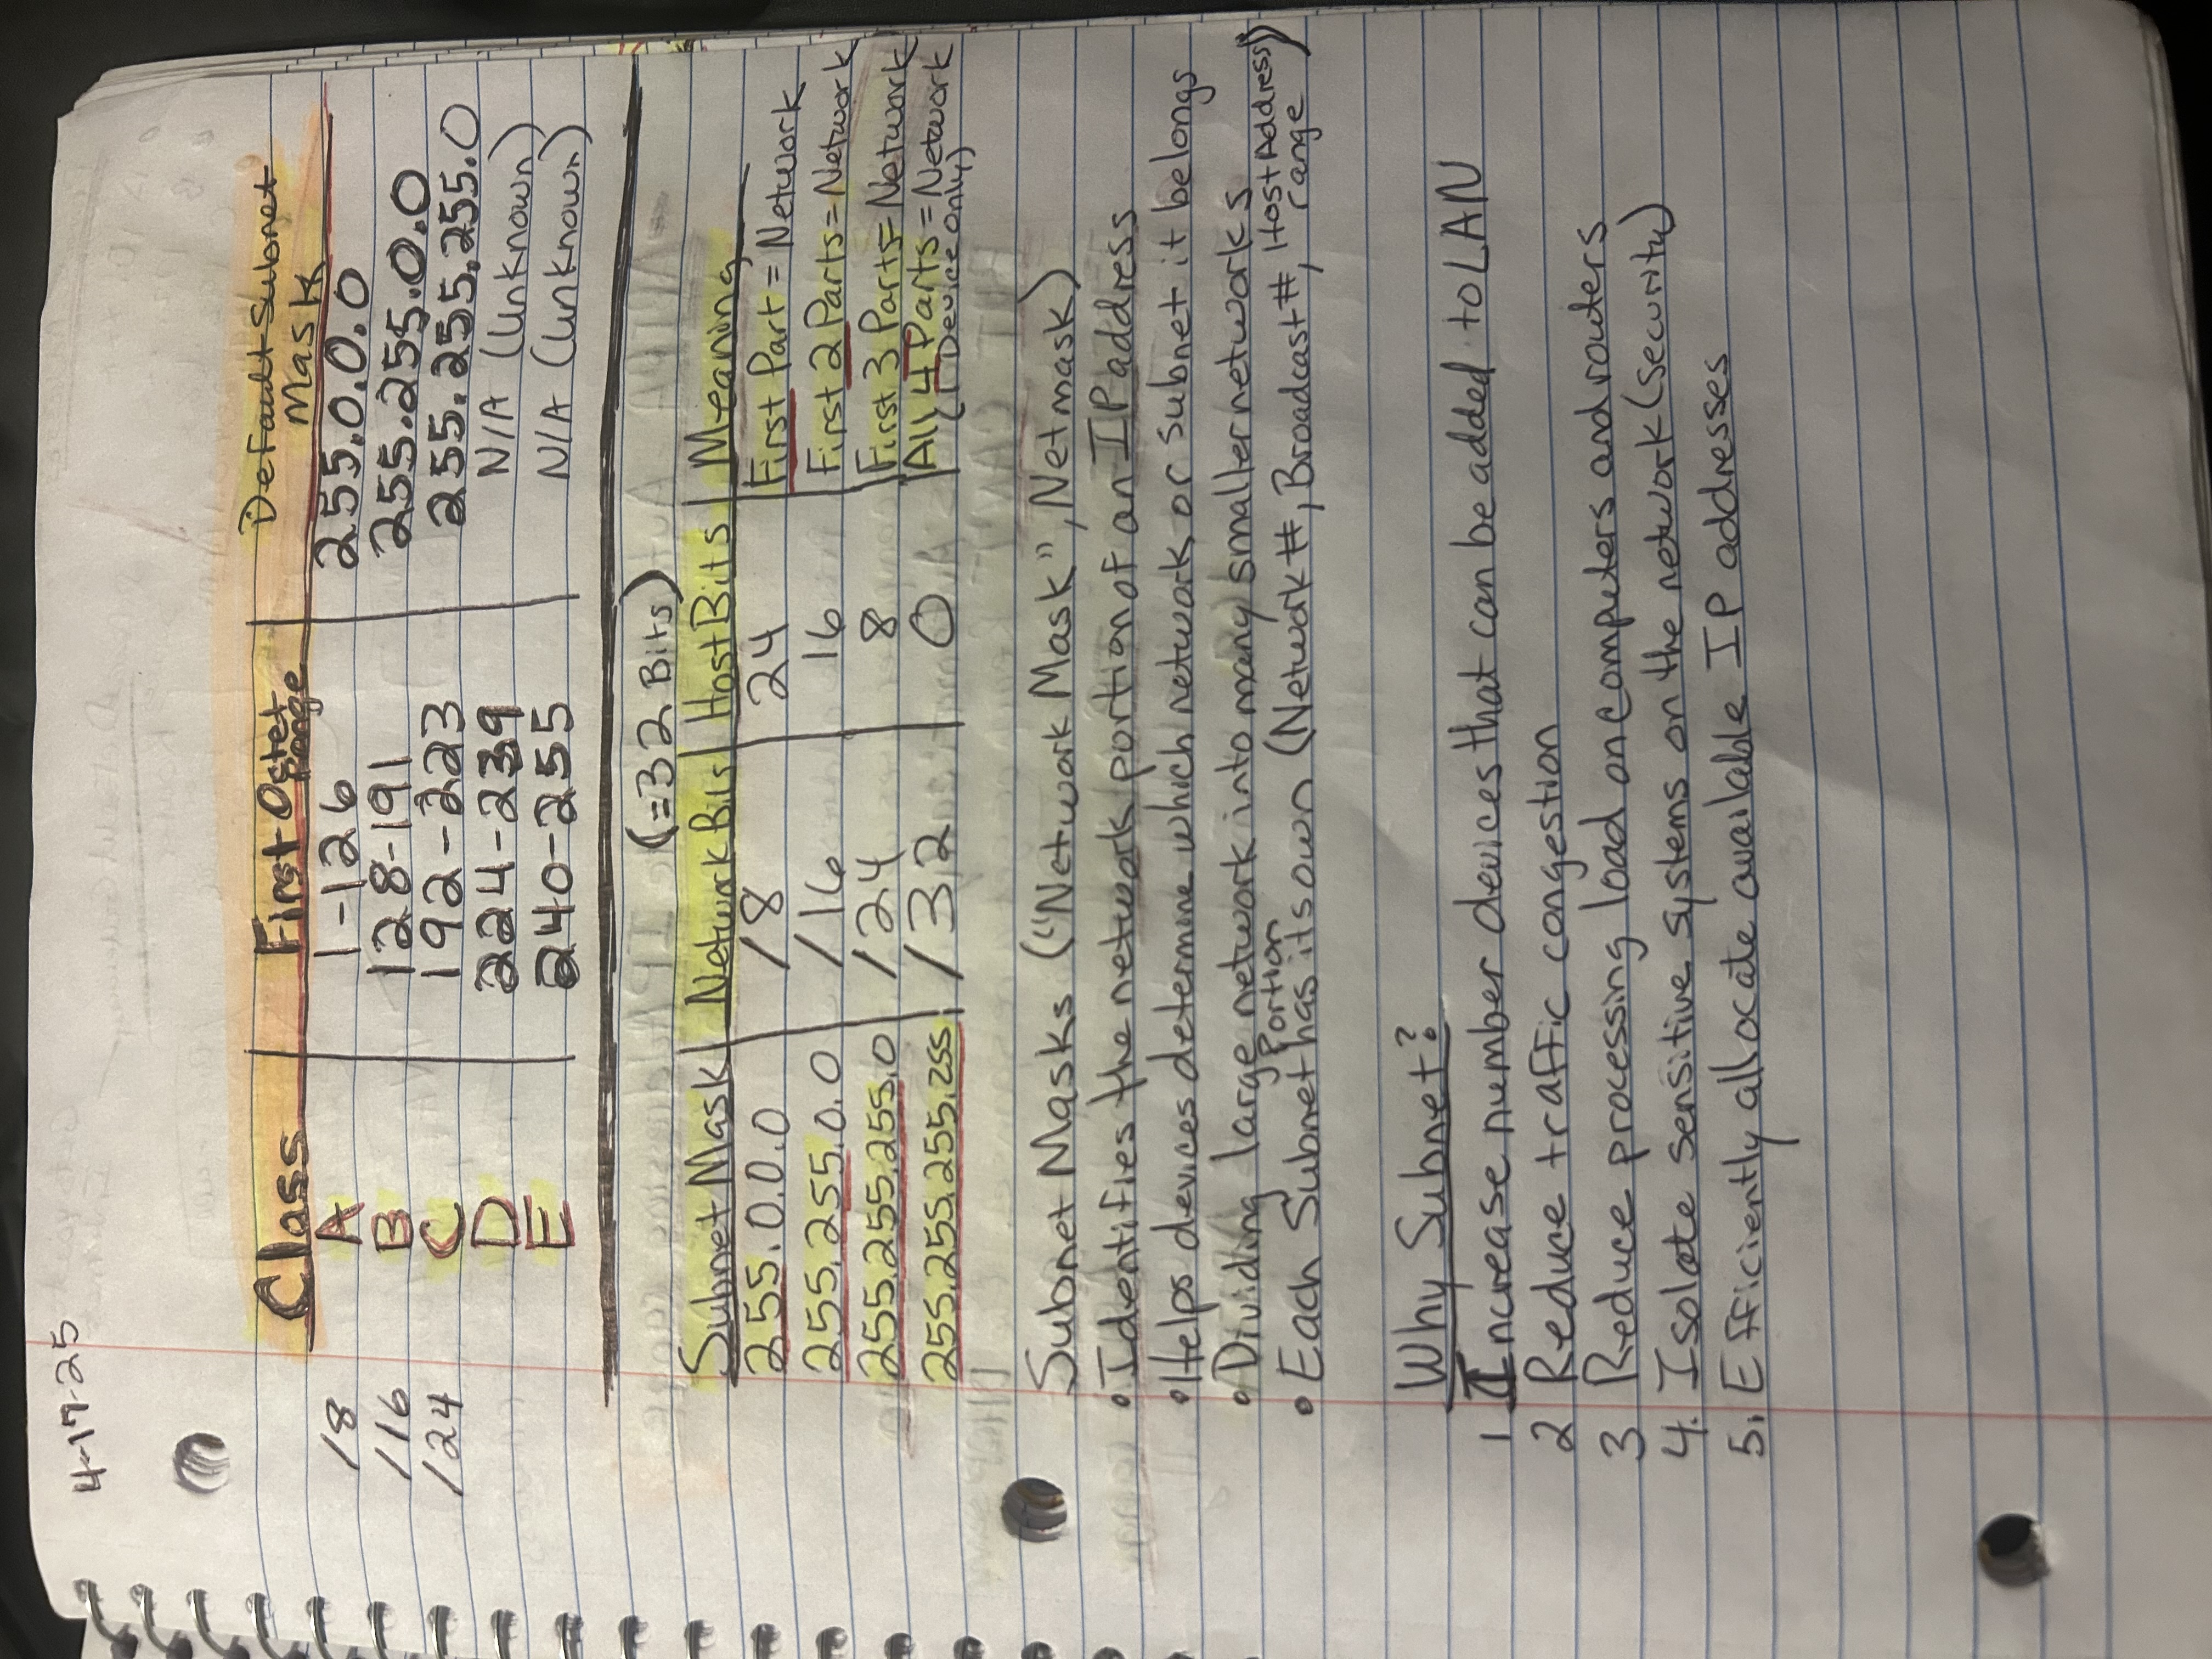 4-17-25
Class | First Octet Range | Default Subnet Mask
/8 A | 1-126 | 255.0.0.0
/16 B | 128-191 | 255.255.0.0
/24 C | 192-223 | 255.255.255.0
D | 224-239 | N/A (Unknown)
E | 240-255 | N/A (Unknown)
(=32 Bits)
Subnet Mask | Network Bits | Host Bits | Meaning
255.0.0.0 | /8 | 24 | First Part = Network
255.255.0.0 | /16 | 16 | First 2 Parts = Network
255.255.255.0 | /24 | 8 | First 3 Parts = Network
255.255.255.255 | /32 | 0 | All 4 Parts = Network
(1 Device Only)
Subnet Masks ("Network Mask", Netmask)
• Identifies the network portion of an IP address
• Helps devices determine which network or subnet it belongs
• Dividing large network into many smaller networks
• Each Subnet Portion has its own (Network #, Broadcast #, Host Address range)
Why Subnet?
1 Increase number devices that can be added to LAN
2 Reduce traffic congestion
3 Reduce processing load on computers and routers
4. Isolate sensitive systems on the network (security)
5. Efficiently allocate available IP addresses